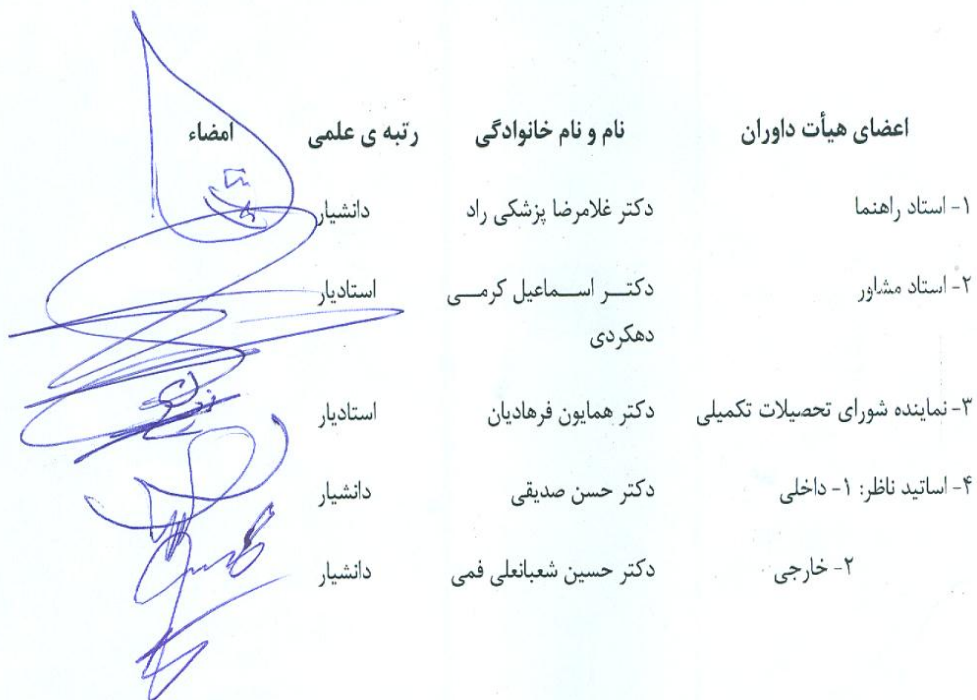 اعضای هیأت داوران نام و نام خانوادگی رتبه ی علمی امضاء
۱- استاد راهنما دکتر غلامرضا پزشکی راد دانشیار
۲- استاد مشاور دکتــر اســماعیل کرمــی استادیار
دهکردی
۳- نماینده شورای تحصیلات تکمیلی دکتر همایون فرهادیان استادیار
۴- اساتید ناظر: ۱- داخلی دکتر حسن صدیقی دانشیار
۲- خارجی دکتر حسین شعبانعلی فمی دانشیار